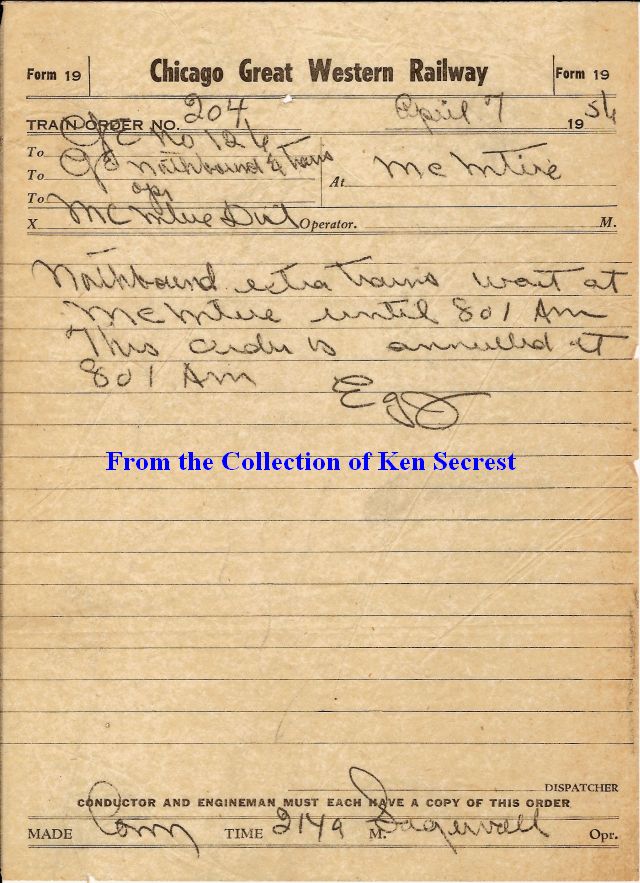 Form 19 Chicago Great Western Railway Form 19
TRAIN ORDER NO. 204 April 7 1954
To C&E No 126
To C&E Northbound X trains
To opr At McIntire
X McIntire Operator. M.
Northbound extra trains wait at
McIntire until 801 Am
This order is annulled at
801 Am
EGJ
From the Collection of Ken Secrest
DISPATCHER
CONDUCTOR AND ENGINEMAN MUST EACH HAVE A COPY OF THIS ORDER
MADE Com TIME 214a M. Opr.